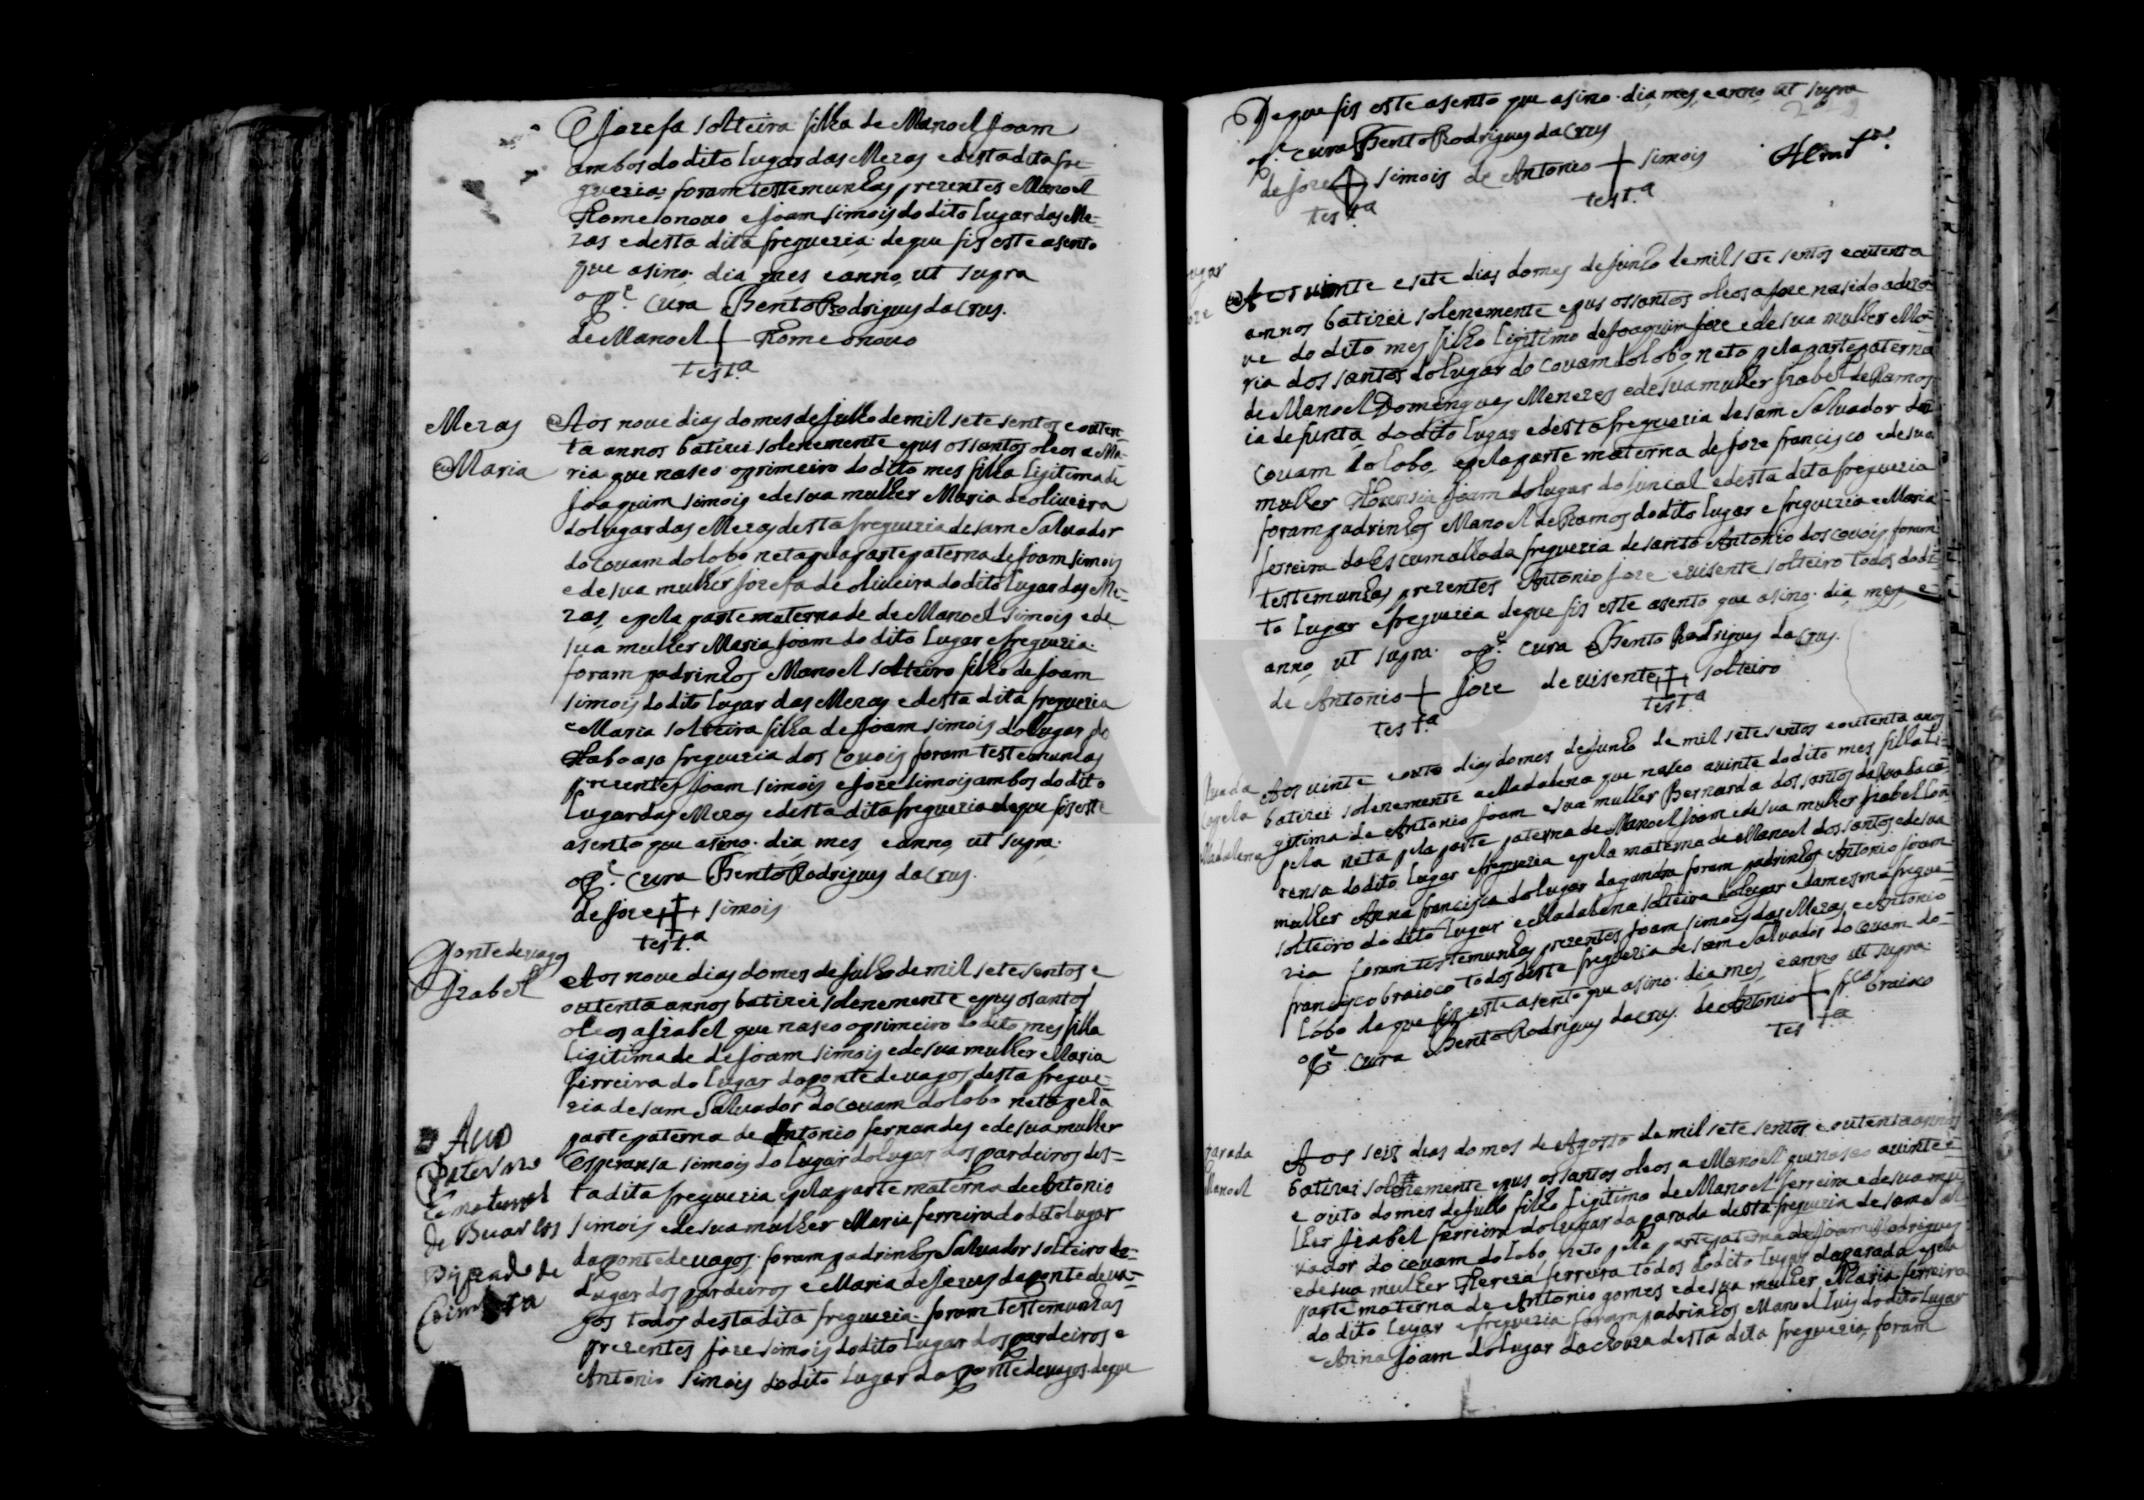 Jozefa solteira filha de Manoel Joam
ambos do dito lugar das Mezas e desta dita fre=
guezia: foram testemunhas prezentes Manoel
Rome onovo e Joam simois do dito lugar das Me=
zas e desta dita freguezia: de que fis este asento
que asino. dia mes e anno, ut supra
o P.e Cura Bento Rodrigues da Crus.
de Manoel + Rome onovo
test.a
Mezas
Maria
Aos nove dias do mes de Julho de mil sete sentos e outen=
ta annos batizei solenemente e pus os santos oleos a Ma=
ria que naseo o primeiro do dito mes filha ligitima de
Joaquim simois e de sua mulher Maria de oliveira
do lugar das Mezas desta freguezia de sam Salvador
do Covam do lobo neta pela parte paterna de Joam simois
e de sua mulher Jozefa de oliveira do dito lugar das Me=
zas, e pela parte materna de de Manoel simois e de
sua mulher Maria Joam do dito lugar e freguezia.
foram padrinhos Manoel solteiro filho de Joam
simois do dito lugar das Mezas e desta dita freguezia
e Maria solteira filha de Joam simois do lugar do
freguezia dos Covois foram testemunhas
prezentes Joam simois e Joze simois ambos do dito
lugar das Mezas e desta dita freguezia de que fis este
asento que asino. dia mes e anno, ut supra.
o P.e Cura Bento Rodrigues da Crus.
de Joze + simois
test.a
Ponte de vagos
Izabel
Aos nove dias do mes de Julho de mil sete sentos e
outenta annos batizei solenemente e pus os santos
oleos a Izabel que naseo o primeiro do dito mes filha
ligitima de de Joam simois e de sua mulher Maria
ferreira do lugar da ponte de vagos desta fregue=
zia de sam Salvador do Covam do lobo neta pela
parte paterna de Antonio fernandes e de sua mulher
Esperansa simois do lugar do lugar dos pardeiros des=
ta dita freguezia e pela parte materna de Antonio
simois e de sua mulher Maria ferreira do dito lugar
da ponte de vagos. foram padrinhos Salvador solteiro do
lugar dos pardeiros e Maria de Jezus da ponte de va=
gos todos desta dita freguezia. foram testemunhas
prezentes Joze simois do dito lugar dos pardeiros e
Antonio simois do dito lugar da ponte de vagos. de que
Avo
Paterno
e maternal
de Buarcos
Bispado de
Coimbra
De que fis este asento que asino. dia mes, e anno, ut supra
o P.e Cura Bento Rodrigues da Crus
de Joze + simois de Antonio + simois
test.a test.a
Aos vinte e sete dias do mes de Junho de mil sete sentos e outenta
annos batizei solenemente e pus os santos oleos a Joze nasido a dezo
ve do dito mes filho ligitimo de Joaquim Joze e de sua mulher Ma=
ria dos santos do lugar do Covam do lobo, neto pela parte paterna
de Manoel Domingues Menezes e de sua mulher Izabel de Ramos
ia defunta do dito lugar e desta freguezia de sam Salvador do
Covam do lobo, e pela parte materna de Joze francisco e de sua
mulher Florensia Joam do lugar do Juncal e desta dita freguezia
foram padrinhos Manoel de Ramos do dito lugar e freguezia e Maria
ferreira da Escumalhada freguezia de santo Antonio dos Covois, foram
testemunhas prezentes Antonio Joze e visente solteiro todos do di=
to lugar e freguezia de que fis este asento que asino. dia mes, e
anno, ut supra. o P.e Cura Bento Rodrigues da Crus.
de Antonio + Joze de visente + solteiro
test.a test.a
Madalena
Aos vinte e outo dias do mes de Junho de mil sete sentos e outenta anos
batizei solenemente a Madalena que naseo a vinte do dito mes filha li=
gitima de Antonio Joam e sua mulher Bernarda dos santos da Quada ca=
pela neta pela parte paterna de Manoel Joam e de sua mulher Izabel Lou=
rensa do dito lugar e freguezia e pela materna de Manoel dos santos e de sua
mulher Anna francisca do lugar da gandra foram padrinhos Antonio Joam
solteiro do dito lugar e Madalena solteira do lugar e da mesma fregue=
zia foram testemunhas prezentes Joam simois das Mezas e Antonio
francisco braioco todos deste freguezia de sam Salvador do Covam do=
lobo de que fis este asento que asino. dia mes, e anno ut supra.
o P.e Cura Bento Rodrigues da Crus. de Antonio + fr.co braioco
test.a
parada
Manoel
Aos seis dias do mes de Agosto de mil sete sentos e outenta annos
batizei solenemente e pus os santos oleos a Manoel que naseo a vinte
e outo do mes de Julho filho ligitimo de Manoel ferreira e de sua mu
lher Izabel ferreira do lugar da parada desta freguezia de sam Sal
vador do Covam do lobo, neto pela parte paterna de Joam Rodrigues
e de sua mulher Thereza ferreira todos do dito lugar da parada e pela
parte materna de Antonio gomes e de sua mulher Maria ferreira
do dito lugar e freguezia foram padrinhos Manoel Luis do dito lugar
e Anna Joam do lugar da Chouza desta dita freguezia, foram